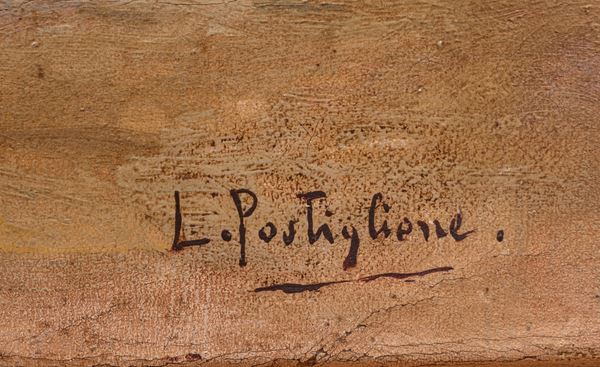 L. Postiglione.